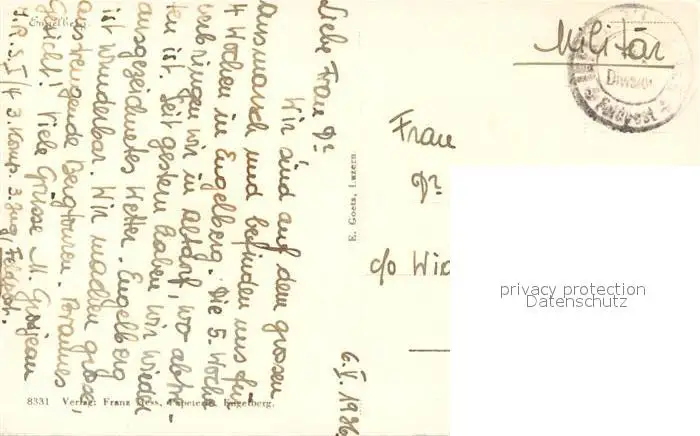 Engelberg.
Liebe Frau Dr
Wir sind auf dem grossen
Ausmarsch und befinden uns für
4 Wochen in Engelberg. Die 5. Woche
verbringen wir in Altdorf, wo abtre-
ten ist. Seit gestern haben wir wieder
ausgezeichnetes Wetter. Engelberg
ist wunderbar. Wir machen gross,
anstrengende Bergtouren. Braunes
Gesicht! Viele Grüsse M. Grosjean
I/4 3. Komp. 3. Zug, Feldpost.
8331 Verlag: Franz Hess, Papeterie, Engelberg.
E. Goetz, Luzern
Militär
Division
Feldpost
Frau
Dr
c/o
6.V.1936
privacy protection
Datenschutz